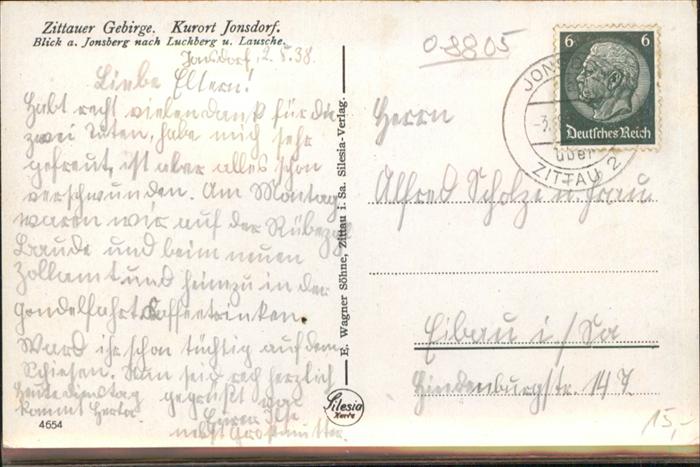 Zittauer Gebirge. Kurort Jonsdorf.
Blick a. Jonsberg nach Luckberg u. Lausche.
Jonsdorf, 2.5.38.
Liebe Eltern!
Habt recht vielen Dank für die
zwei Tüten, habe mich sehr
gefreut, ist aber alles schon
verschwunden. Am Montag
waren wir auf der Rübezahl
Baude und beim neuen
Zollamt und heimzu in der
Gondelfahrt Kaffeetrinken.
Ward ihr schon tüchtig auf dem
Schießen. Nun seid rech herzlich
Heute Dienstag gegrüßt von
kommt Herta. Eurer Ilse
nebst Großmutter.
4654
E. Wagner Söhne, Zittau i. Sa. Silesia-Verlag.
Silesia
Karte
0-8805
6 6
Deutsches Reich
JON
über
ZITTAU 2
Herrn
Alfred Scholze u. Frau
Eibau i/Sa
Hindenburgstr. 147
15,-